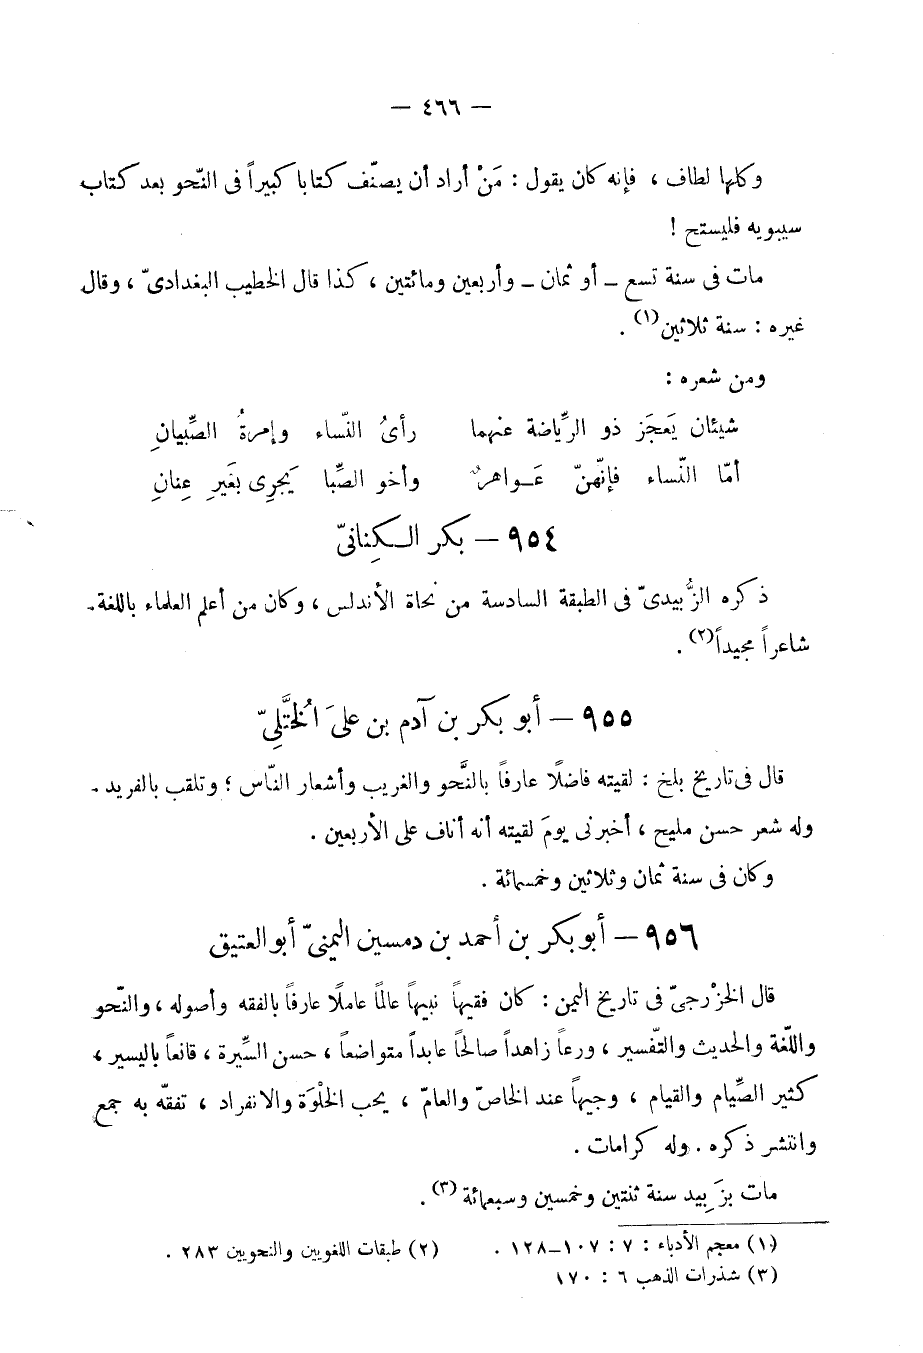 — ٤٦٦ —
وكلها لطاف ، فإنه كان يقول : مَنْ أراد أن يصنّف كتابا كبيراً فى النّحو بعد كتاب
سيبويه فليستح !
مات فى سنة تسع – أو ثمان – وأربعين ومائتين ، كذا قال الخطيب البغدادىّ ، وقال
غيره : سنة ثلاثين(١) .
ومن شعره :
شيئان يَعجَز ذو الرِّياضة عنهما رأىُ النّساء وإمرةُ الصِّبيانِ
أمّا النّساء فإنّهنّ عَواهرٌ وأخو الصِّبا يَجرِى بغَيرِ عِنانِ
٩٥٤ – بكر الكِنانىّ
ذكره الزُّبيدىّ فى الطبقة السادسة من نحاة الأندلس ، وكان من أعلم العلماء باللغة.
شاعراً مجيداً(٢) .
٩٥٥ – أبو بكر بن آدم بن علىَ الُختَّلِىّ
قال فى تاريخ بلخ : لقيته فاضلًا عارفاً بالنَّحو والغريب وأشعار النّاس ؛ وتلقب بالفريد .
وله شعر حسن مليح ، أخبرنى يومَ لقيته أنه أناف على الأربعين .
وكان فى سنة ثمان وثلاثين وخمسمائة .
٩٥٦ – أبو بكر بن أحمد بن دمسين اليمنىّ أبو العتيق
قال الخزْرجىّ فى تاريخ اليمن : كان فقيهاً نبيهاً عالماً عاملًا عارفاً بالفقه وأصوله ، والنّحو
واللّغة والحديث والتفّسير ، ورعاً زاهداً صالحاً عابداً متواضعاً ، حسن السِّيرة ، قانعاً باليسير ،
كثير الصِّيام والقيام ، وجيهاً عند الخاصّ والعامّ ، يحب الخلْوَة والانفراد ، تفقّه به جمع
وانتشر ذكره . وله كرامات .
مات بزَبيد سنة ثنتين وخمسين وسبعمائة (٣) .
(١) معجم الأدباء : ٧ : ١٠٧–١٢٨ . (٢) طبقات اللغويين والنحويين ٢٨٣ .
(٣) شذرات الذهب ٦ : ١٧٠